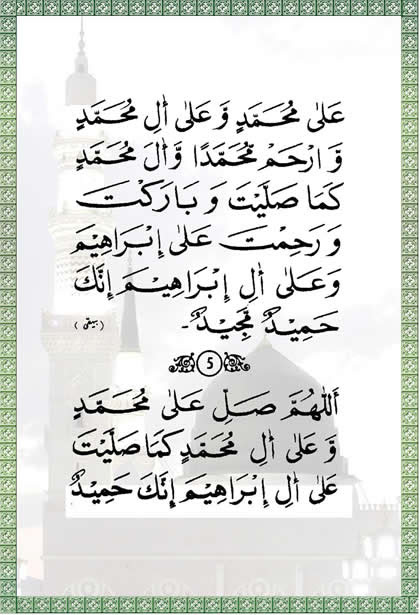 عَلٰى مُحَمَّدٍ وَّ عَلٰى اٰلِ مُحَمَّدٍ
وَّ ارْحَمْ مُحَمَّدًا وَّ اٰلَ مُحَمَّدٍ
كَمَا صَلَّيْتَ وَ بَارَكْتَ
وَ رَحِمْتَ عَلٰى اِبْرَاهِيْمَ
وَ عَلٰى اٰلِ اِبْرَاهِيْمَ اِنَّكَ
حَمِيْدٌ مَّجِيْدٌ۔ (بیہقی)
5
اَللّٰهُمَّ صَلِّ عَلٰى مُحَمَّدٍ
وَّ عَلٰى اٰلِ مُحَمَّدٍ كَمَا صَلَّيْتَ
عَلٰى اٰلِ اِبْرَاهِيْمَ اِنَّكَ حَمِيْدٌ